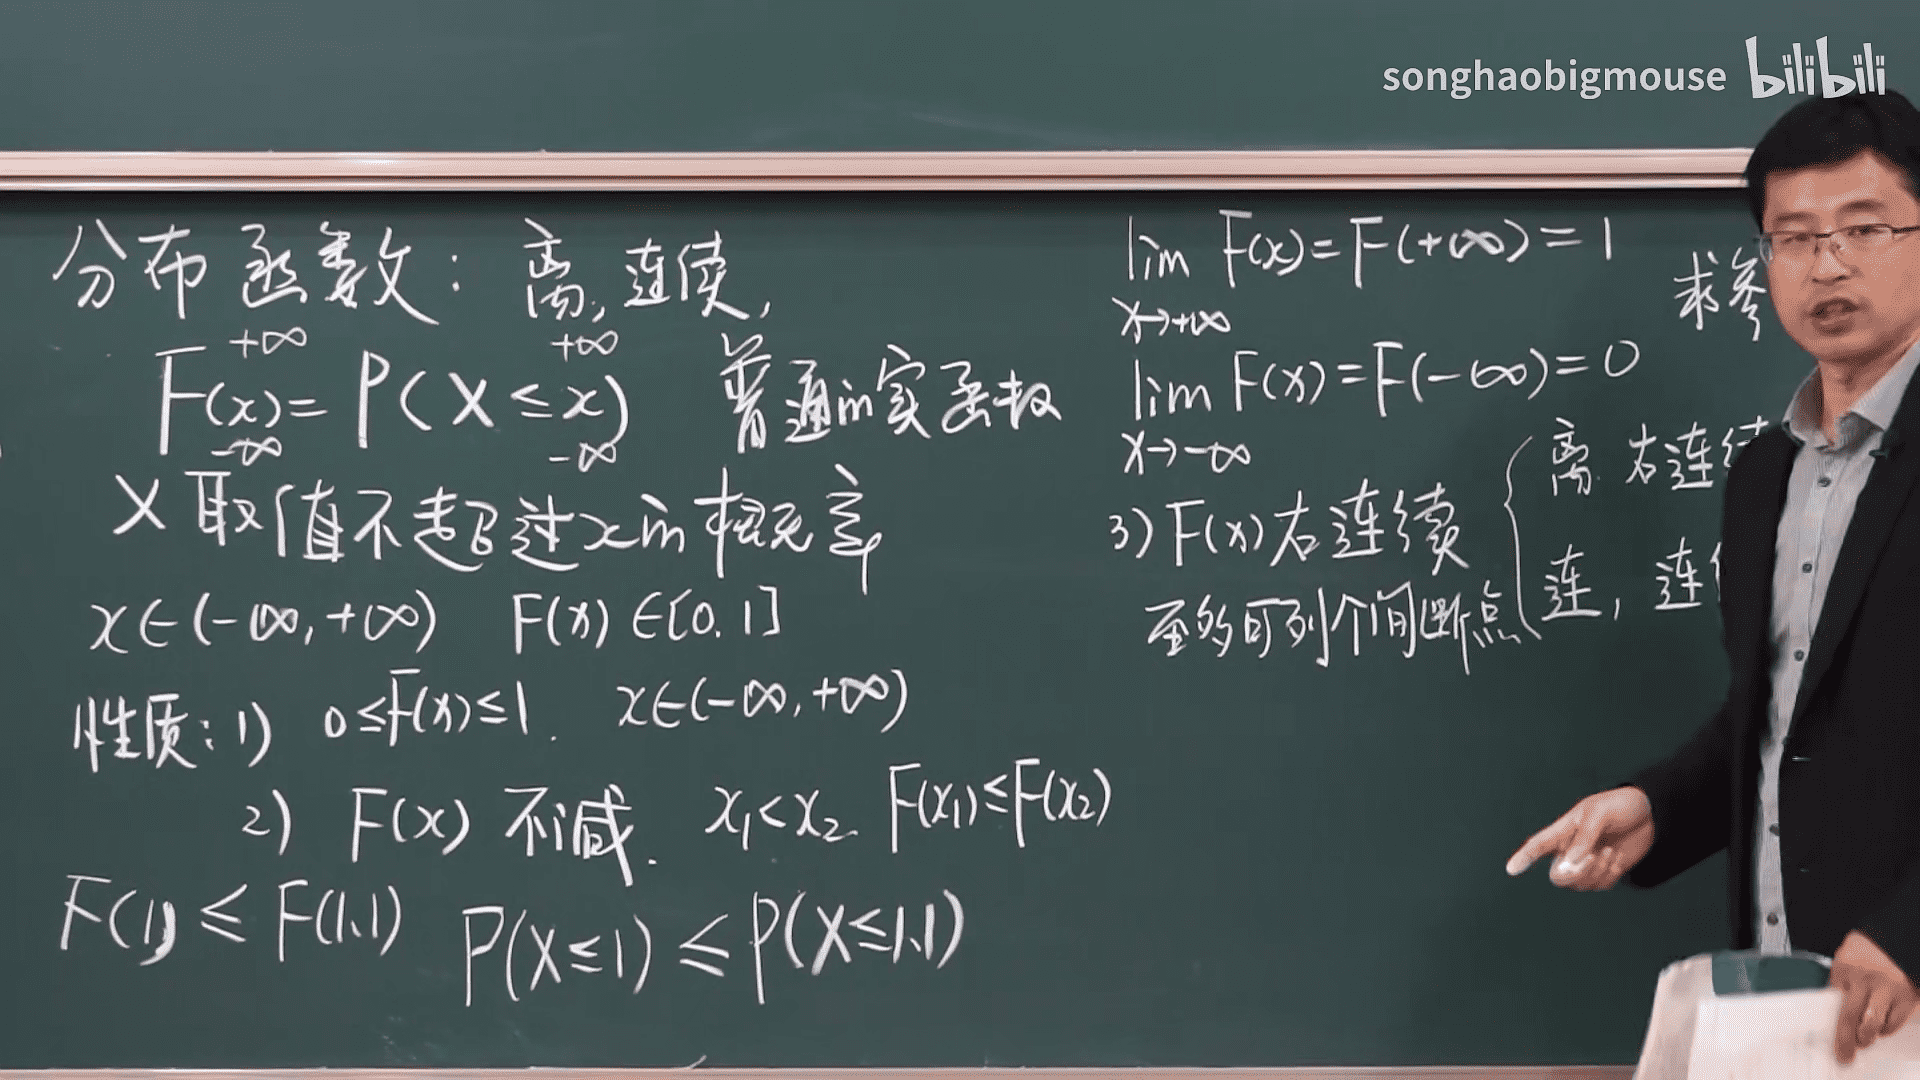 songhaobigmouse bilibili
分布函数：离，连续，
+∞ +∞
F(x)=P(X≤x) 普通的实函数
-∞ -∞
X取值不超过x的概率
x∈(-∞,+∞) F(x)∈[0,1]
性质：1) 0≤F(x)≤1. x∈(-∞,+∞)
2) F(x) 不减. x₁<x₂. F(x₁)≤F(x₂)
F(1)≤F(1.1) P(X≤1)≤P(X≤1.1)
lim F(x)=F(+∞)=1
x→+∞
求参
lim F(x)=F(-∞)=0
x→-∞
3) F(x)右连续
至多可列个间断点
离. 右连续
连，连